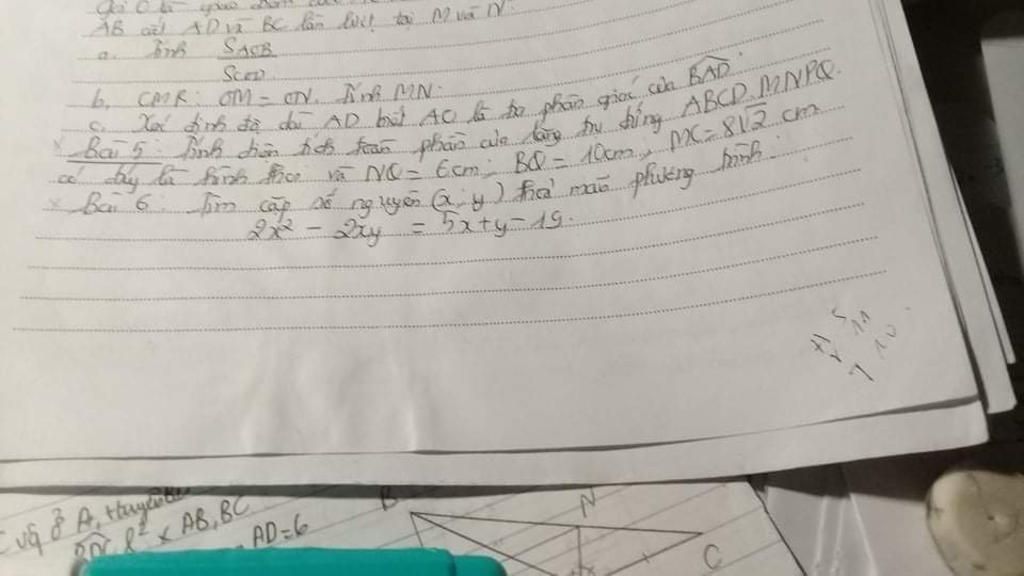 Gọi O là giao điểm của
AB cắt AD và BC lần lượt tại M và N.
a. Tính S_AOB / S_COD
b, CMR: OM = ON. Tính MN.
c. Xác định độ dài AD biết AC là tia phân giác của BAD.
x Bài 5: Tính diện tích toàn phần của lăng trụ đứng ABCD.MNPQ.
có đáy là hình thoi và NQ = 6cm; BQ = 10cm; MC = 8√2 cm
x Bài 6: Tìm cặp số nguyên (x; y) thoả mãn phương trình:
2x² - 2xy = 5x + y - 19.
vg ở A,
AB, BC
AD = 6
B
N
C